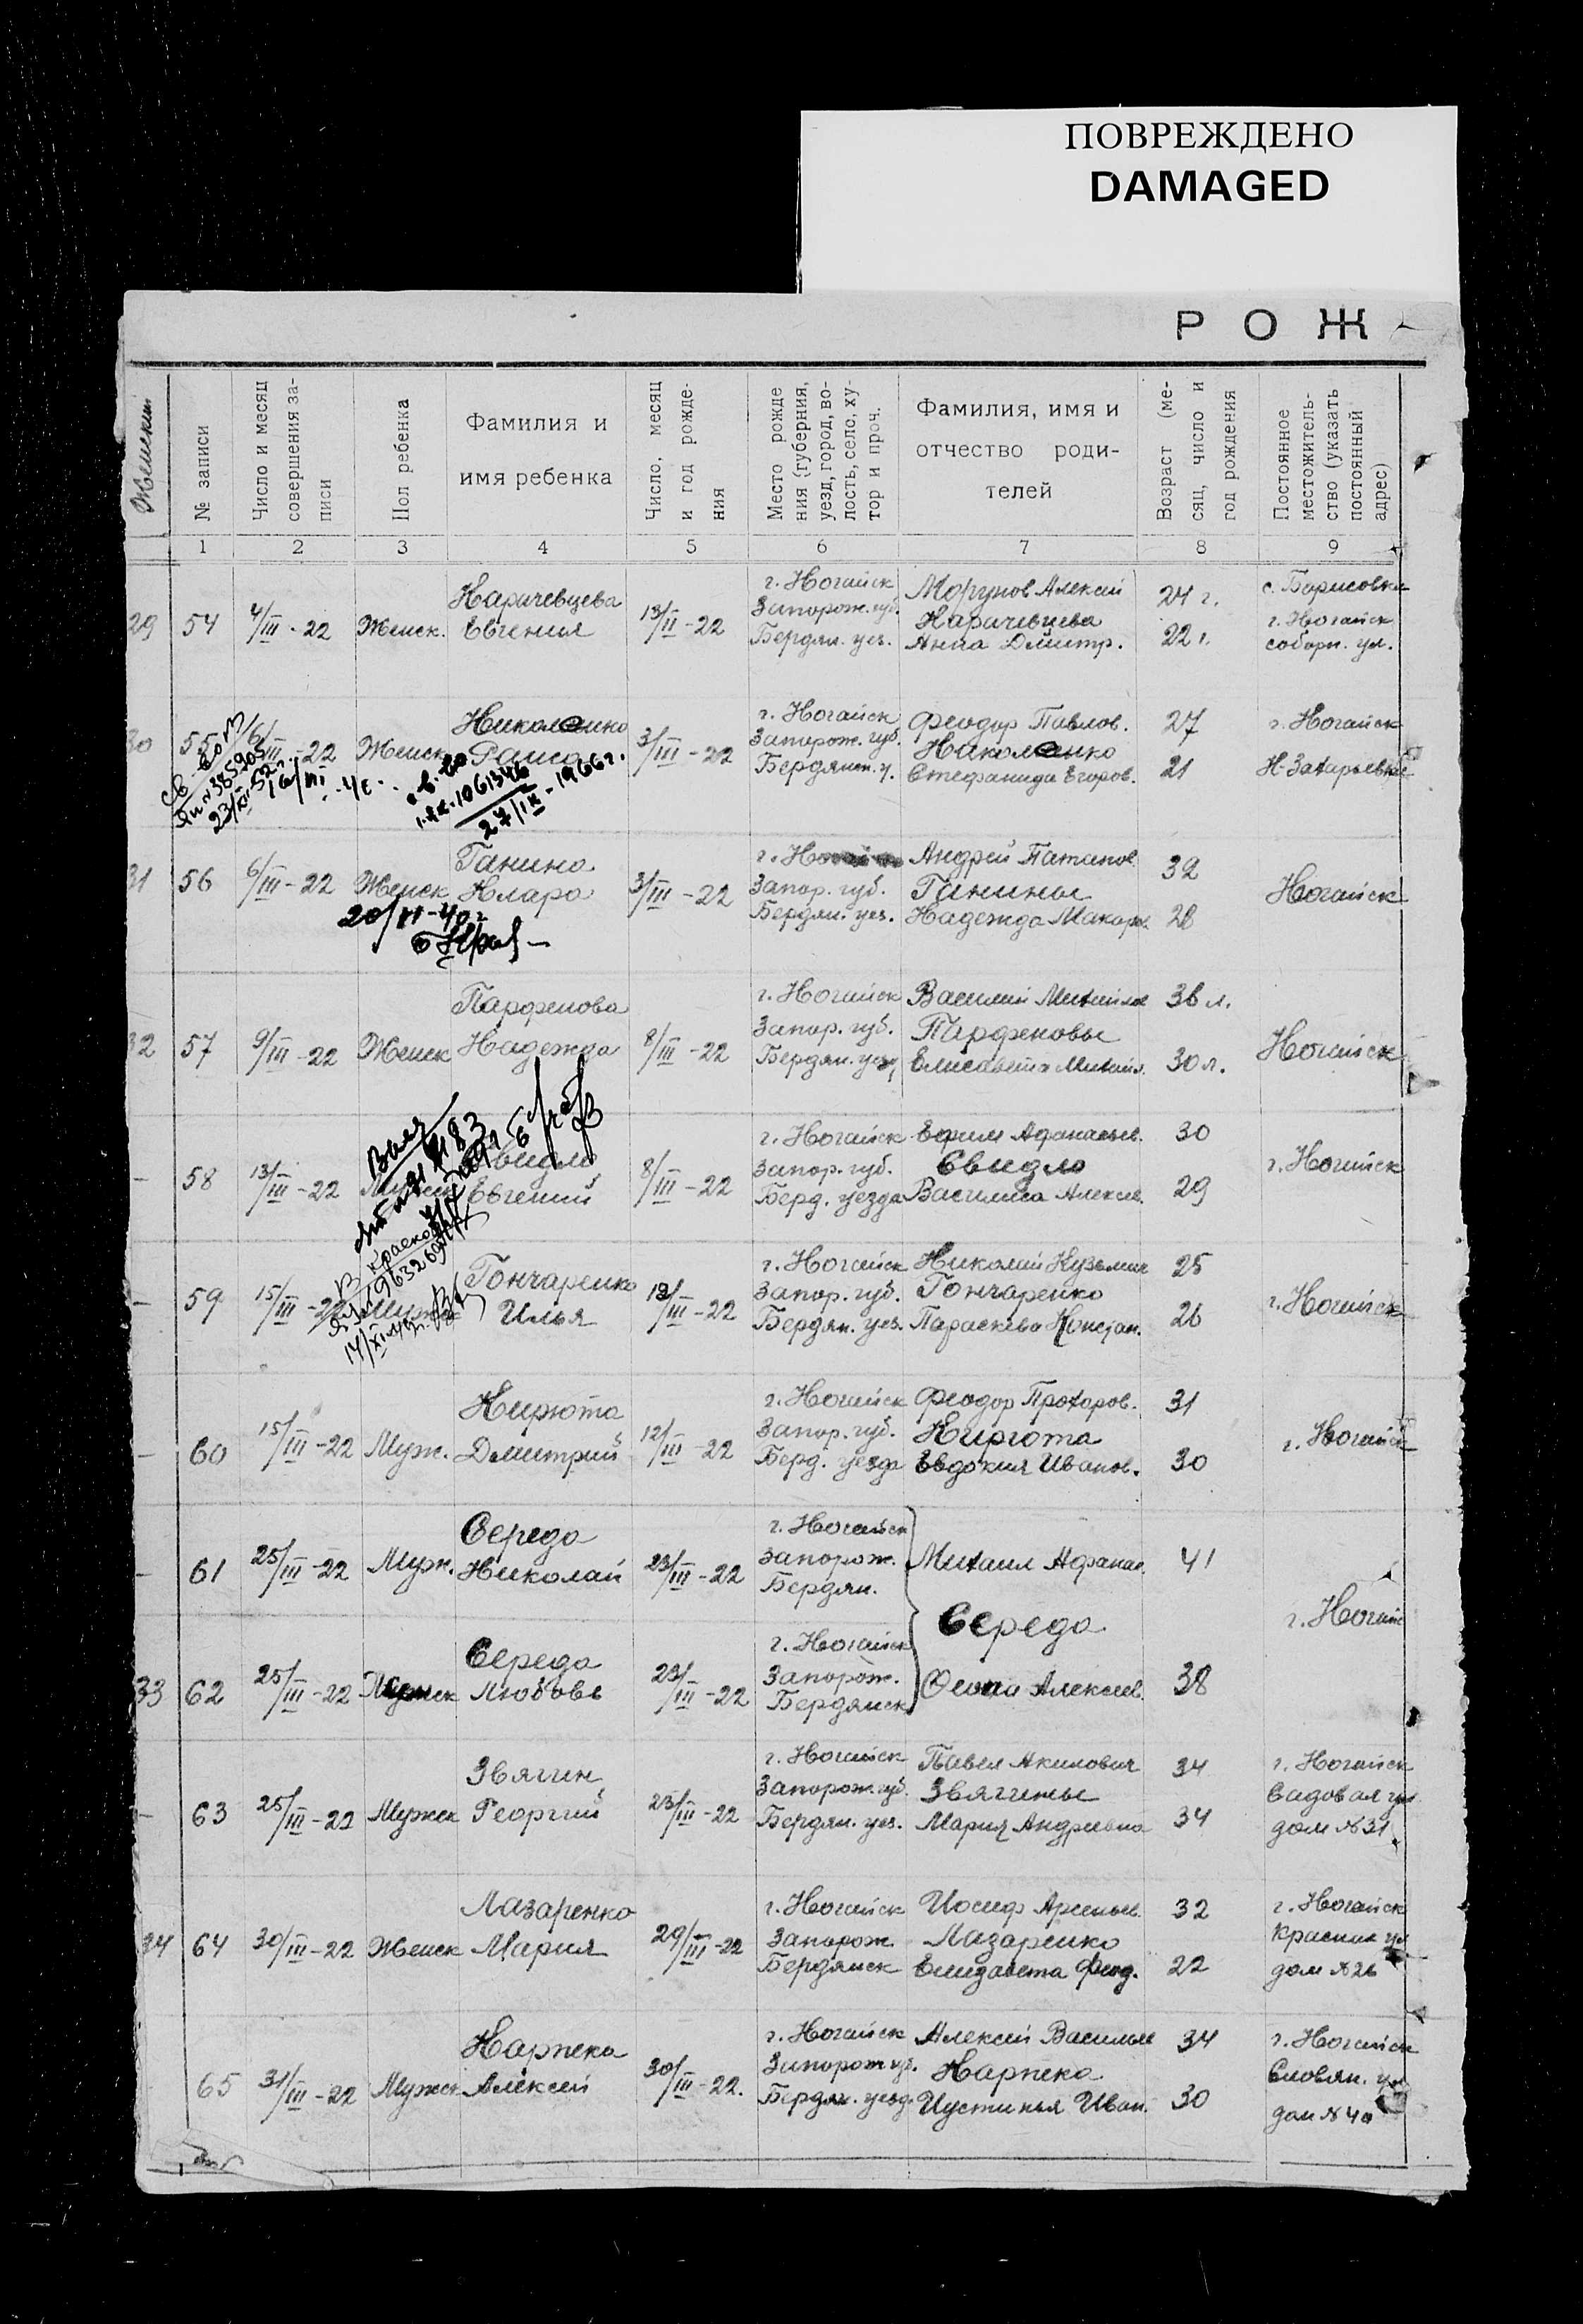 ПОВРЕЖДЕНО
DAMAGED
Р О Ж
Женский
№ записи
Число и месяц совершения за-
писи
Пол ребенка
Фамилия и
имя ребенка
Число, месяц
и год рожде-
ния
Место рожде
ния (губерния,
уезд, город, во-
лость, село, ху-
тор и проч.
Фамилия, имя и
отчество роди-
телей
Возраст (ме-
сяц, число и
год рождения
Постоянное
местожитель-
ство (указать
постоянный
адрес)
1 2 3 4 5 6 7 8 9
29 54 4/III-22 Женск.
Карачевцева
Евгения
13/II-22
г. Ногайск
Запорож. губ.
Бердян. уез.
Моргунов Алексей
Карачевцева
Анна Дмитр.
24 г.
22 г.
с. Борисовка
г. Ногайск
соборн. ул.
30 55 6/III-22 Женск
Николенко
Раиса
3/III-22
г. Ногайск
Запорож. губ.
Бердянск. у.
Феодор Павлов.
Николенко
Стефанида Егоров.
27
21
г. Ногайск
Н-Захарьевка
385905
1061346
27/IX-1966 г.
31 56 6/III-22 Женск
Ганина
Клара
3/III-22
г. Ногайск
Запор. губ.
Бердян. уез.
Андрей Патапов
Ганины
Надежда Макаров.
32
28
Ногайск
32 57 9/III-22 Женск
Парфенова
Надежда
8/III-22
г. Ногайск
Запор. губ.
Бердян. уез.
Василий Михайлов
Парфеновы
Елисавета Михайл.
38 л.
30 л.
Ногайск
- 58 13/III-22 Мужск
Свидло
Евгений
8/III-22
г. Ногайск
Запор. губ.
Берд. уезда
Ефим Афанасьев.
Свидло
Василиса Алексеев.
30
29
г. Ногайск
- 59 15/III-22 Мужск
Гончаренко
Илья
12/III-22
г. Ногайск
Запор. губ.
Бердян. уез.
Николай Кузьмич
Гончаренко
Параскева Констан.
25
26
г. Ногайск
- 60 15/III-22 Муж.
Кирюта
Дмитрий
12/III-22
г. Ногайск
Запор. губ.
Берд. уезда
Феодор Прохоров.
Кирюта
Евдокия Иванов.
31
30
г. Ногайск
- 61 25/III-22 Муж.
Середа
Николай
23/III-22
г. Ногайск
Запорож.
Бердян.
Михаил Афанас.
41
Середа
г. Ногайс
33 62 25/III-22
Середа
Любовь
23/III-22
г. Ногайск
Запорож.
Бердянск
Алексеев.
38
- 63 25/III-22 Мужск
Звягин
Георгий
23/III-22
г. Ногайск
Запорож. губ.
Бердян. уез.
Павел Акимович
Звягины
Мария Андреевна
34
34
г. Ногайск
Садовая ул
дом №31
34 64 30/III-22 Женск
Лазаренко
Мария
29/III-22
г. Ногайск
Запорож
Бердянск
Иосиф Арсеньев.
Лазаренко
Елизавета Феод.
32
22
г. Ногайск
Красная ул
дом №26
65 31/III-22 Мужск
Карпека
Алексей
30/III-22.
г. Ногайск
Запорож губ.
Бердян. уезд.
Алексей Васильев
Карпека
Иустинья Иван.
34
30
г. Ногайск
Словян. ул
дом №40